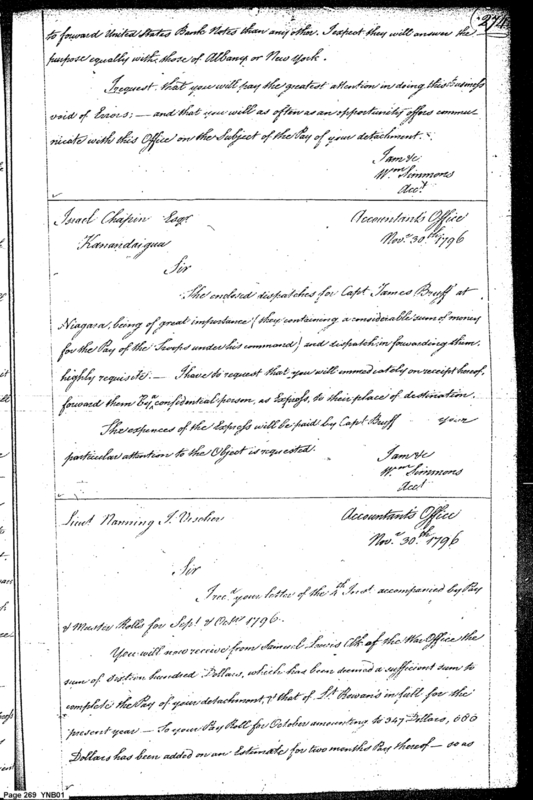 274
to forward United States Bank Notes than any other. I expect they will answer the
purpose equally with those of Albany or New York.
I request that you will pay the greatest attention in doing this Business
void of Errors; — and that you will as often as an opportunity offers commu-
nicate with this Office on the Subject of the Pay of your detachment.
I am &c
Wm Simmons
Acct
Israel Chapin Esqr. Accountants Office
Kanandaigua Novr. 30th 1796
Sir
The enclosed dispatches for Capt James Bruff at
Niagara, being of great importance (they containing a considerable sum of money
for the Pay of the Troops under his command) and dispatch in forwarding them,
highly requisite: — I have to request that you will immediately on receipt hereof,
forward them By a confidential person, as Express, to their place of destination.
The expences of the Express will be paid by Capt Bruff your
particular attention to the Object is requested.
I am &c
Wm Simmons
Acct
Lieut Nanning J. Vischer Accountant's Office
Novr. 30th 1796
Sir
I recd your letter of the 4th Inst accompanied by Pay
& Muster Rolls for Sept & Octr 1796.
You will now receive from Samuel Lewis Clk of the War Office the
sum of sixteen hundred Dollars, which has been deemed a sufficient sum to
complete the Pay of your detachment, & that of Lt Bowan's in full for the
present year — To your Pay Roll for October amounting to 347 Dollars, 600
Dollars has been added on an Estimate for two months Pay thereof — so as
Page 269 YNB01